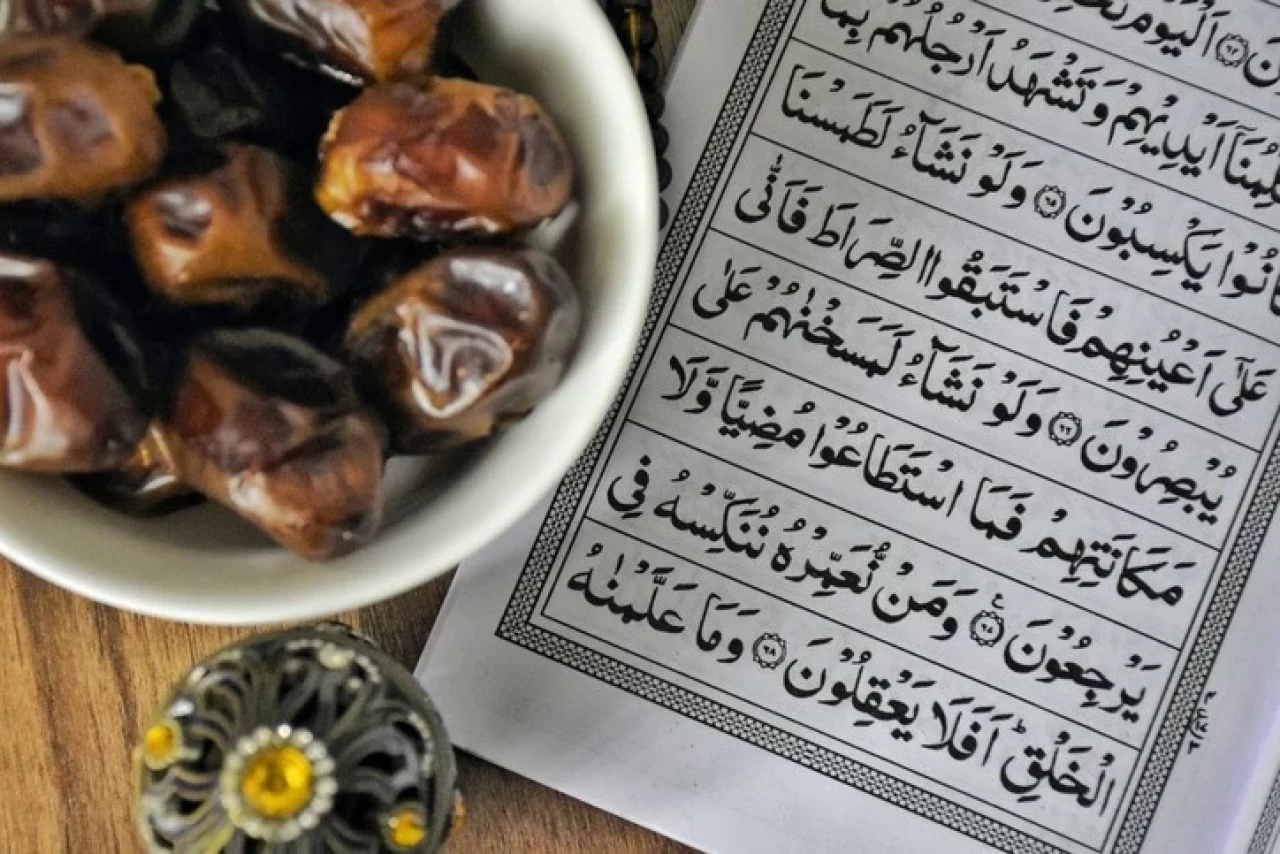 ۝٦٤ اَلْيَوْمَ
اَيْدِيْهِمْ وَتَشْهَدُ اَرْجُلُهُمْ بِمَا
يَكْسِبُوْنَ ۝٦٥ وَلَوْ نَشَآءُ لَطَمَسْنَا
عَلٰٓى اَعْيُنِهِمْ فَاسْتَبَقُوا الصِّرَاطَ فَاَنّٰى
يُبْصِرُوْنَ ۝٦٦ وَلَوْ نَشَآءُ لَمَسَخْنٰهُمْ عَلٰى
مَكَانَتِهِمْ فَمَا اسْتَطَاعُوْا مُضِيًّا وَّلَا
يَرْجِعُوْنَ ۝٦٧ وَمَنْ نُّعَمِّرْهُ نُنَكِّسْهُ فِي
الْخَلْقِ ؕ اَفَلَا يَعْقِلُوْنَ ۝٦٨ وَمَا عَلَّمْنٰهُ